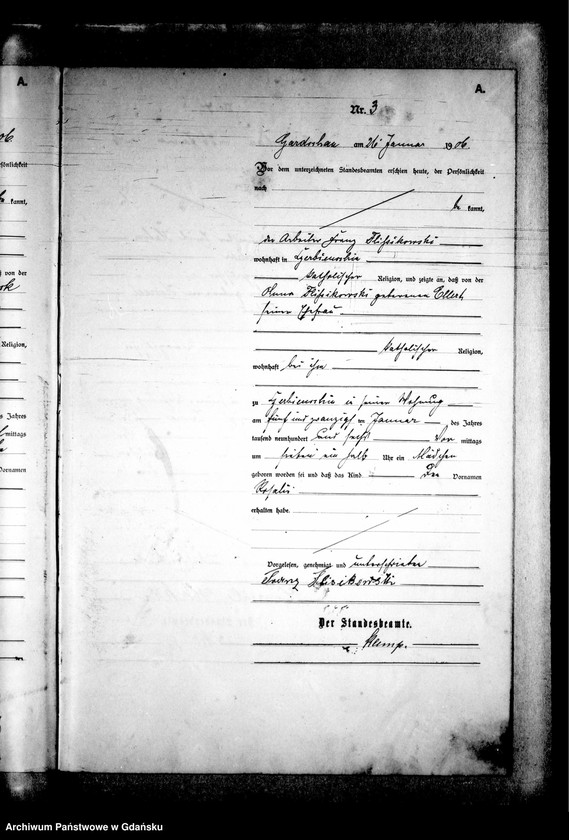 A.
A.
Nr. 3
06.
Gardschau am 26 Januar 1906.
sönlichkeit
Vor dem unterzeichneten Standesbeamten erschien heute, der Persönlichkeit
nach
kannt,
b kannt,
der Arbeiter Franz
wohnhaft in
s von der
katholischer Religion, und zeigte an, daß von der
Anna geborenen Ellert,
seiner Ehefrau
Religion,
katholischer Religion,
wohnhaft bei ihm
zu in seiner Wohnung
s Jahres
am fünf und zwanzigsten Januar des Jahres
mittags
tausend neunhundert und sechs Vor mittags
um sieben ein halb Uhr ein Mädchen
Vornamen
geboren worden sei und daß das Kind Vornamen
erhalten habe.
Vorgelesen, genehmigt und unterschrieben
Franz
Der Standesbeamte.
Archiwum Państwowe w Gdańsku